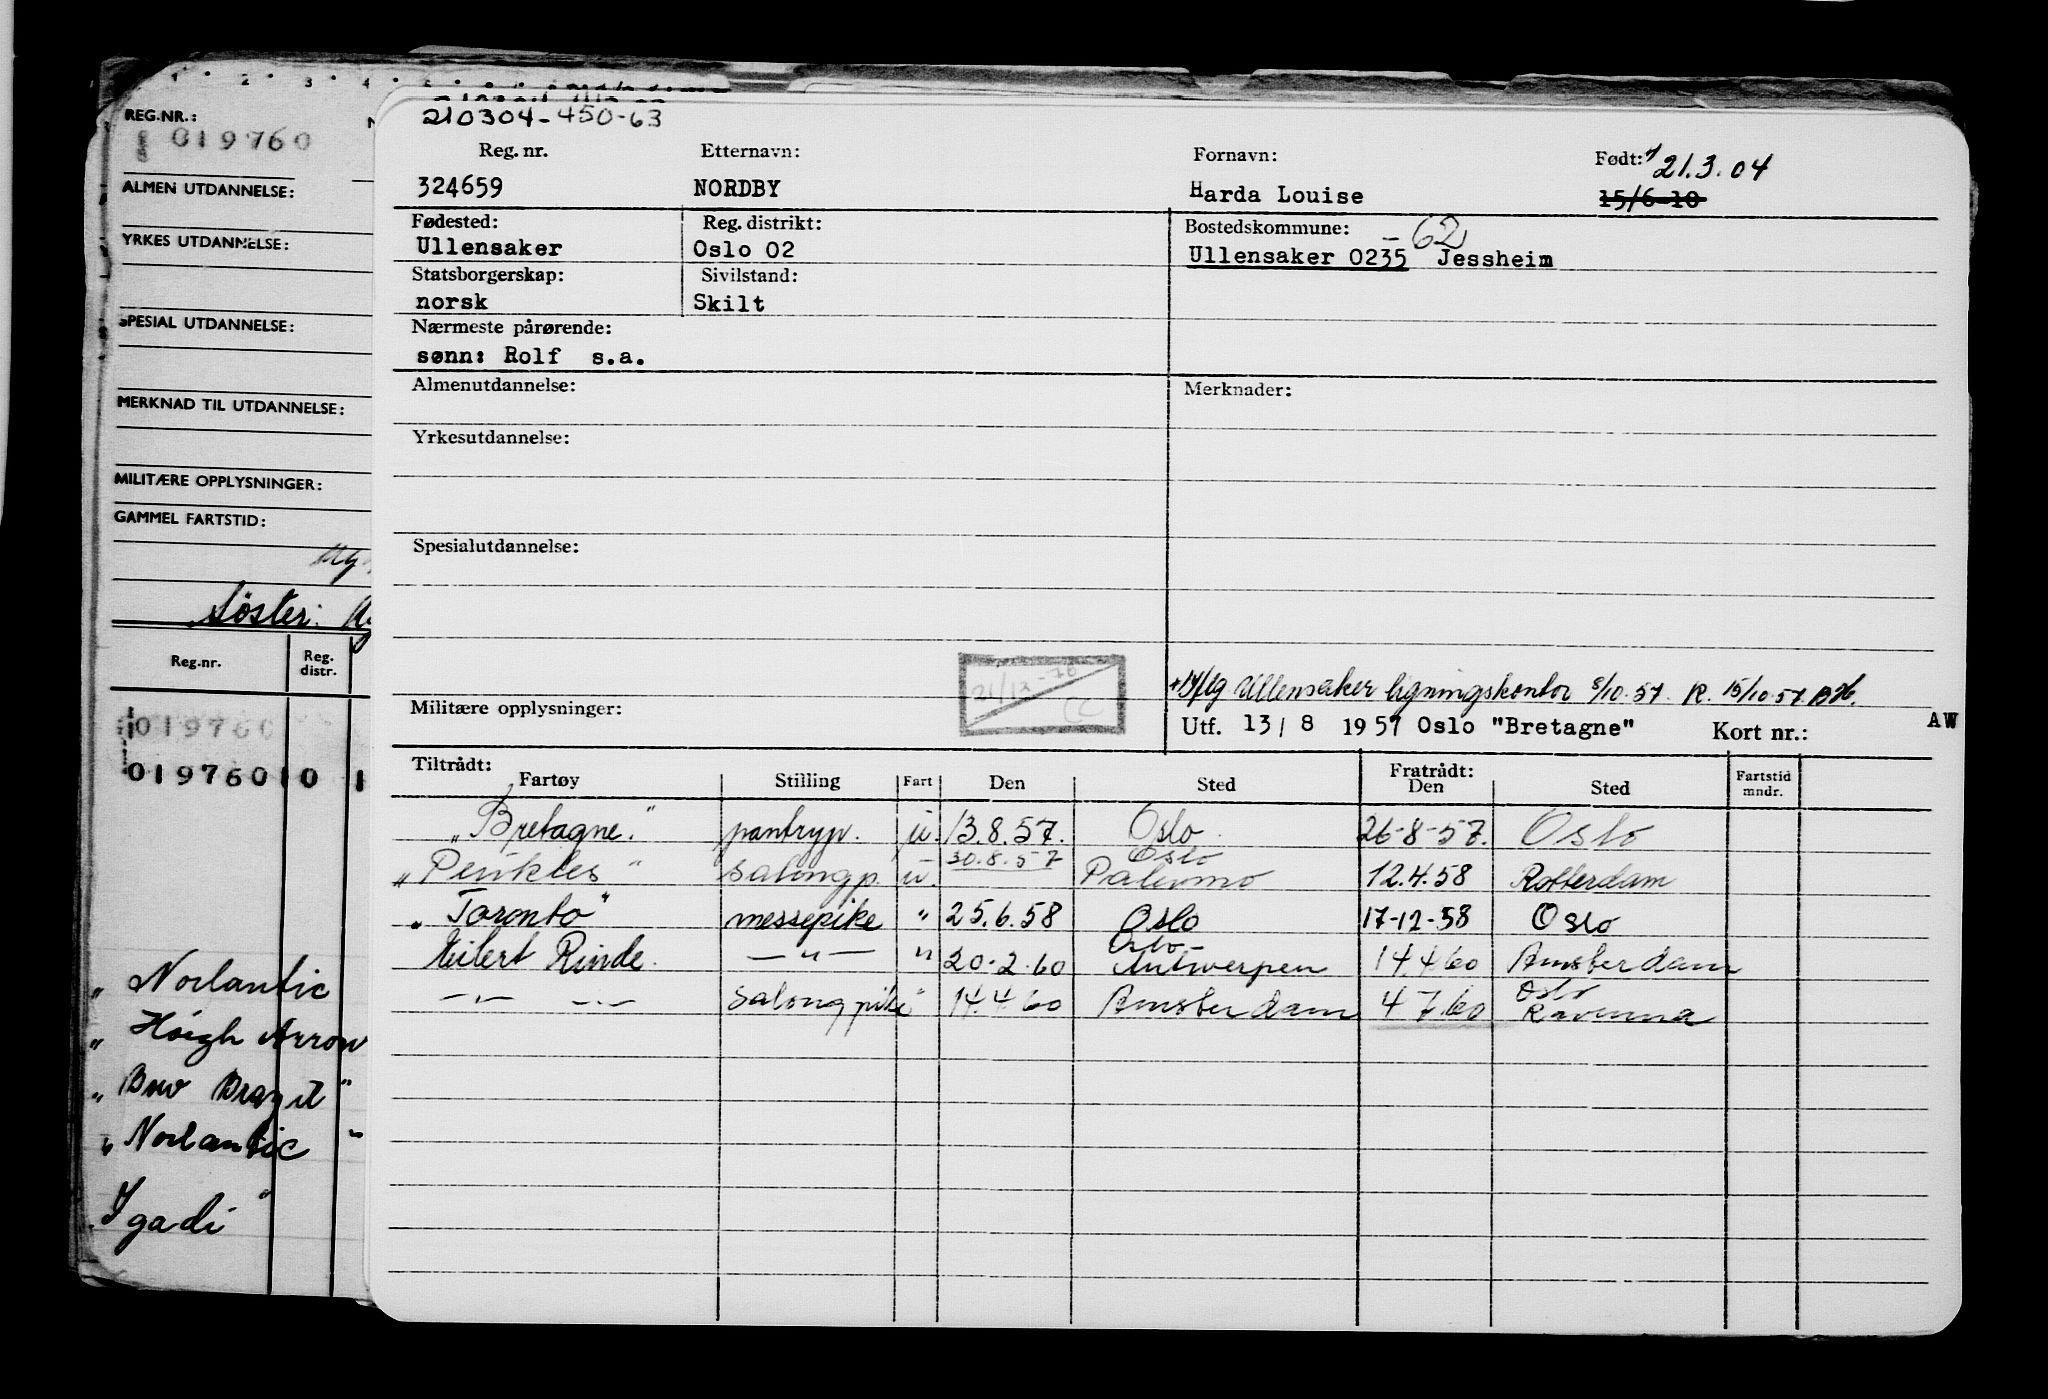 1 2 3 4 5
REG.NR.:
019760
ALMEN UTDANNELSE:
YRKES UTDANNELSE:
SPESIAL UTDANNELSE:
MERKNAD TIL UTDANNELSE:
MILITÆRE OPPLYSNINGER:
GAMMEL FARTSTID:
Søster:
Reg.nr. Reg. distr.
019760
019760 0 1
„ Norlantic
„ Høigh Arrow
„ Bow Bragd "
„ Norlantic "
Igadi "
210304-450-63
Reg. nr. Etternavn: Fornavn: Født: 21.3.04
324659 NORDBY Harda Louise 15/6-10
Fødested: Reg. distrikt: Bostedskommune: 62
Ullensaker Oslo 02 Ullensaker 0235 Jessheim
Statsborgerskap: Sivilstand:
norsk Skilt
Nærmeste pårørende:
sønn: Rolf s.a.
Almenutdannelse: Merknader:
Yrkesutdannelse:
Spesialutdannelse:
21/12-70
Ullensaker ligningskontor 8/10.57. R. 15/10.57.
Militære opplysninger: Utf. 13/8 1957 Oslo "Bretagne" Kort nr.: AW
Tiltrådt: Fratrådt:
Fartøy Stilling Fart Den Sted Den Sted Fartstid mndr.
„Bretagne." pantryp. u. 13.8.57. Oslo. 26-8-57. Oslo
30.8.57 Oslo
„Perikles" salongp. u. Palermo 12.4.58 Rotterdam
„Toronto" messepike " 25.6.58 Oslo 17-12-58 Oslo
Oslo
Eilert Rinde. —"— " 20-2.60 Antwerpen 14.4.60 Amsterdam
Oslo
—"— —"— Salongpike " 14.4.60 Amsterdam 4 7.60 Ravenna